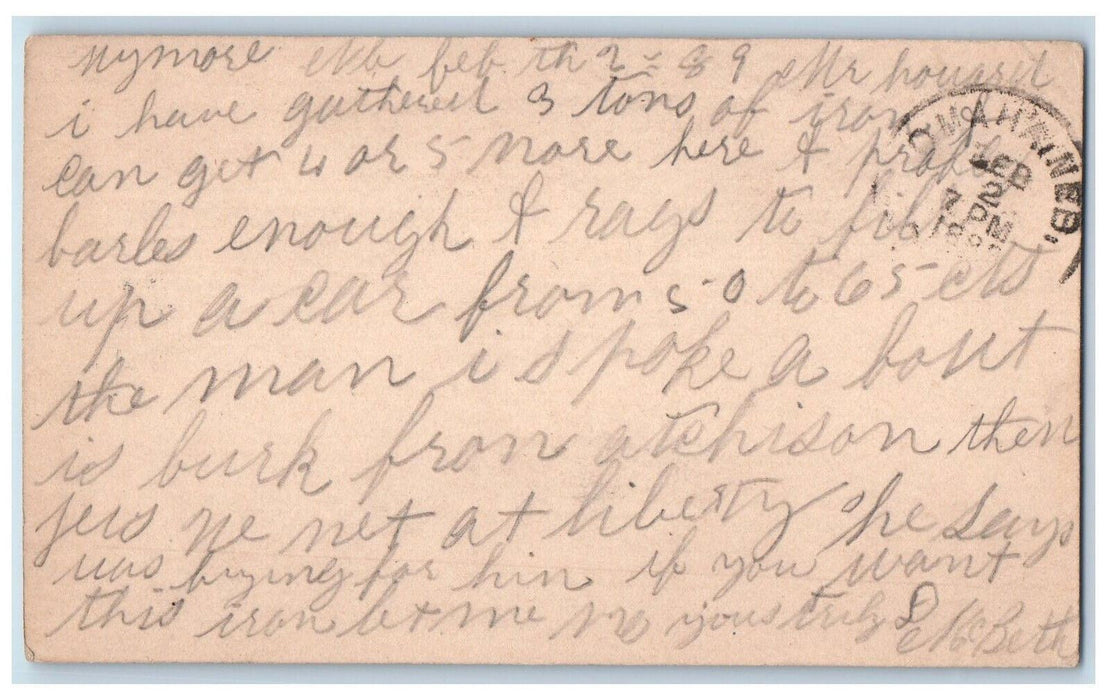 Wymore Neb feb th 2 = 89 Mr houard
i have guthered 3 tons of iron &
can get 4 or 5 more here &
barles enough & rags to fill
up a car from 50 to 65 cts
the man i spoke a bout
is burk from atchison then
jews we net at liberty he says
was buying for him if you want
this iron let me no yours truly
McBeth
OMAHA, NEB.
FEB
2
7 PM